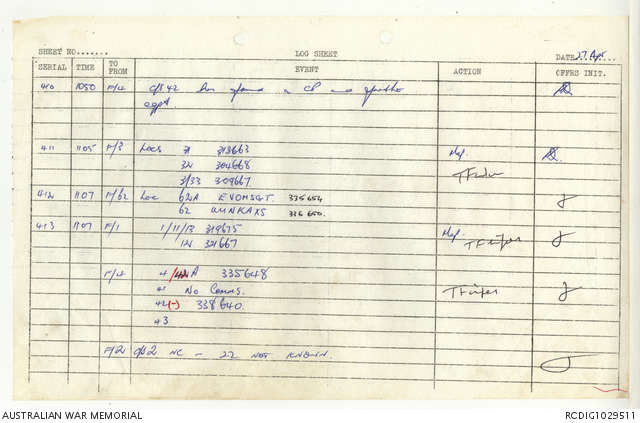 SHEET NO....... LOG SHEET DATE 27 Apr
SERIAL TIME TO FROM EVENT ACTION OFFRS INIT.
410 1050 F/4 C/S 42 CP
eqpt
411 1105 F/3 Locs 31 313663 Map.
32 304668
3/33 309667
412 1107 F/62 Loc 62A EVOMSGT. 335654
62 UUNKAXS 336650.
413 1107 F/1 1/11/13 319675 Map.
12 321667
F/4 4/42A 335648
41 No Comms.
42(-) 338640.
43
F/2 C/S 2 NC - 22 NOT KNOWN.
AUSTRALIAN WAR MEMORIAL RCDIG1029511